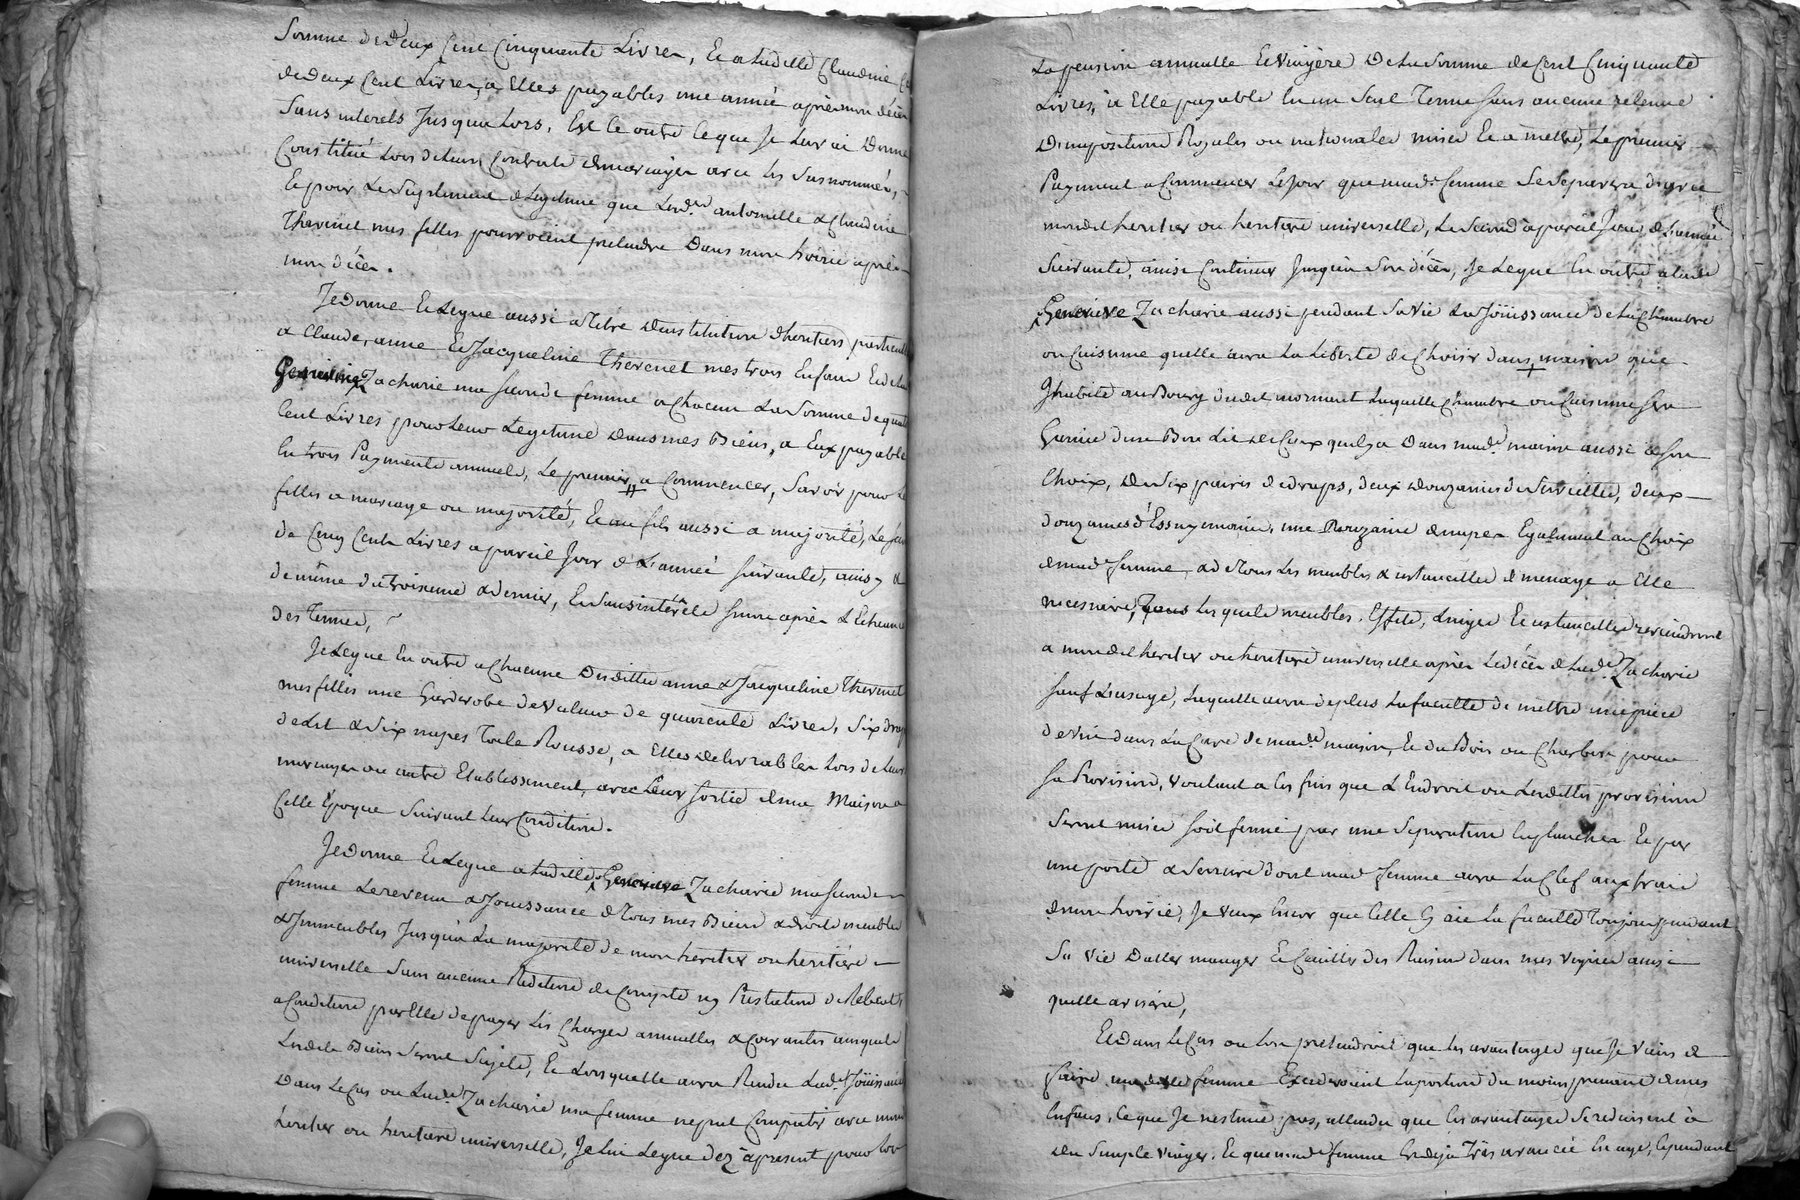 Somme de deux Cent Cinquante Livres, Et a ladille Claudine
de deux Cent Livres, a Elles payables une année après mon décès
Sans interets Jusqua Lors, Et ce outre Ce que Je leur ai Donné
Constitué Lors de leurs Contrats de mariages avec les Susnommés,
Et pour Le Suplement de Legitime que Lesd.es antoinette & Claudine
Thevenet mes filles pourroient pretendre Dans mon hoirie après
mon décès.
Je donne Et Legue aussi a titre D'institution d'heritiers particuliers
a Claude, anne Et Jacqueline Thevenet mes trois Enfans Et de
Zacharie ma Seconde femme a Chacun La Somme de
Cent Livres pour Leur Legitime Dans mes Biens, a Eux payable
En trois Payments annuels, Le premier a Commencer, Savoir pour
filles a mariage ou majorité, Et au fils aussi a majorité, Le
de Cinq Cents Livres a pareil Jour de L'année Suivante, ainsy &
de même du troisieme & dernier, Et Sans interets Sinon après L'Echeance
des Termes,
Je Legue En outre a Chacune Desdittes anne & Jacqueline Thevenet
mes filles une Garderobe de valeur de quarente Livres, Six draps
de Lit & Six napes Toile Rousse, a Elles delivrables Lors de Leurs
mariages ou autre Etablissement, avec Leur Sortie de ma Maison a
Celle Epoque Suivant Leur Condition.
Je donne Et Legue a ladille Genevieve Zacharie ma Seconde
femme Le revenu & Jouissance de Tous mes Biens & droits meubles
& Immeubles Jusqu'à La majorité de mon heritier ou heritiere
universelle Sans aucune Reditions de Compte ny Prestation de Reliquats
a Condition par Elle de payer Les Charges annuelles & Courantes auxquels
Lesdits Biens Seront Sujets, Et Lorsquelle aura Rendu Lad.te Jöuissance
Dans Le Cas ou Lad.te Zacharie ma femme ne put Compatir avec mon
heritier ou heritiere universelle, Je Lui Legue dez àpresent pour Lors
La pension annuelle Et Viagère De La Somme de Cent Cinquante
Livres, à Elle payable En un Seul Terme Sans aucune retenue
D'impositions Royales ou nationales mises Et a mettre, Le premier
Payment a Commencer Le Jour que mad.e femme Se Separera d'avec
mondit heritier ou heritiere universelle, Le Second à pareil Jour de L'année
Suivante, ainsi Continuer Jusqu'à Son décès, Je Legue En outre a lad.te
Genevieve Zacharie aussi pendant Sa Vie La Jöuissance de La Chambre
ou Cuisinne quelle aura La Liberté de Choisir dans maison que
J'habite au Bourg dudit mornant Laquelle Chambre ou Cuisinne Sera
Garnie d'un Bon Lit de Ceux quil y a Dans mad.e maison aussi a Son
Choix, de Six pairs de draps, deux Douzaines de Serviettes, deux
douzaines d'Essuymains, une Douzaine de napes Egalement au Choix
de mad.e femme & de Tous Les meubles & ustancilles de menage a Elle
necessaire, Tous Lesquels meubles, Effets, Linges Et ustancilles reviendront
a mondit heritier ou heritiere universelle après Le décès de Lad.te Zacharie
Sauf L'usage, Laquelle aura de plus La faculté de mettre une pièce
de vin dans La Cave de mad.e maison, Et du Bois ou Charbon pour
Sa Provision, voulant a Ces fins que L'Endroit ou Lesdittes provisions
Seront mises Soit fermé par une Separation En planches Et par
une porte & Serrure dont mad.e femme aura La Clef aux frais
de mon hoirie, Je veux Encor que Celle Cy aie La faculté Toujours pendant
Sa Vie D'aller manger Et Cueillir des Raisins dans mes vignes ainsi
quelle avisera,
Et Dans Le Cas ou L'on pretendroit que Les avantages que Je viens de
faire a madite femme Excederoient La portion du moins prenant de mes
Enfans, Ce que Je n'estime pas, attendu que Ces avantages Se reduisent à
du Simple viager, Et que mad.e femme Est deja Très avancée En age, Cependant